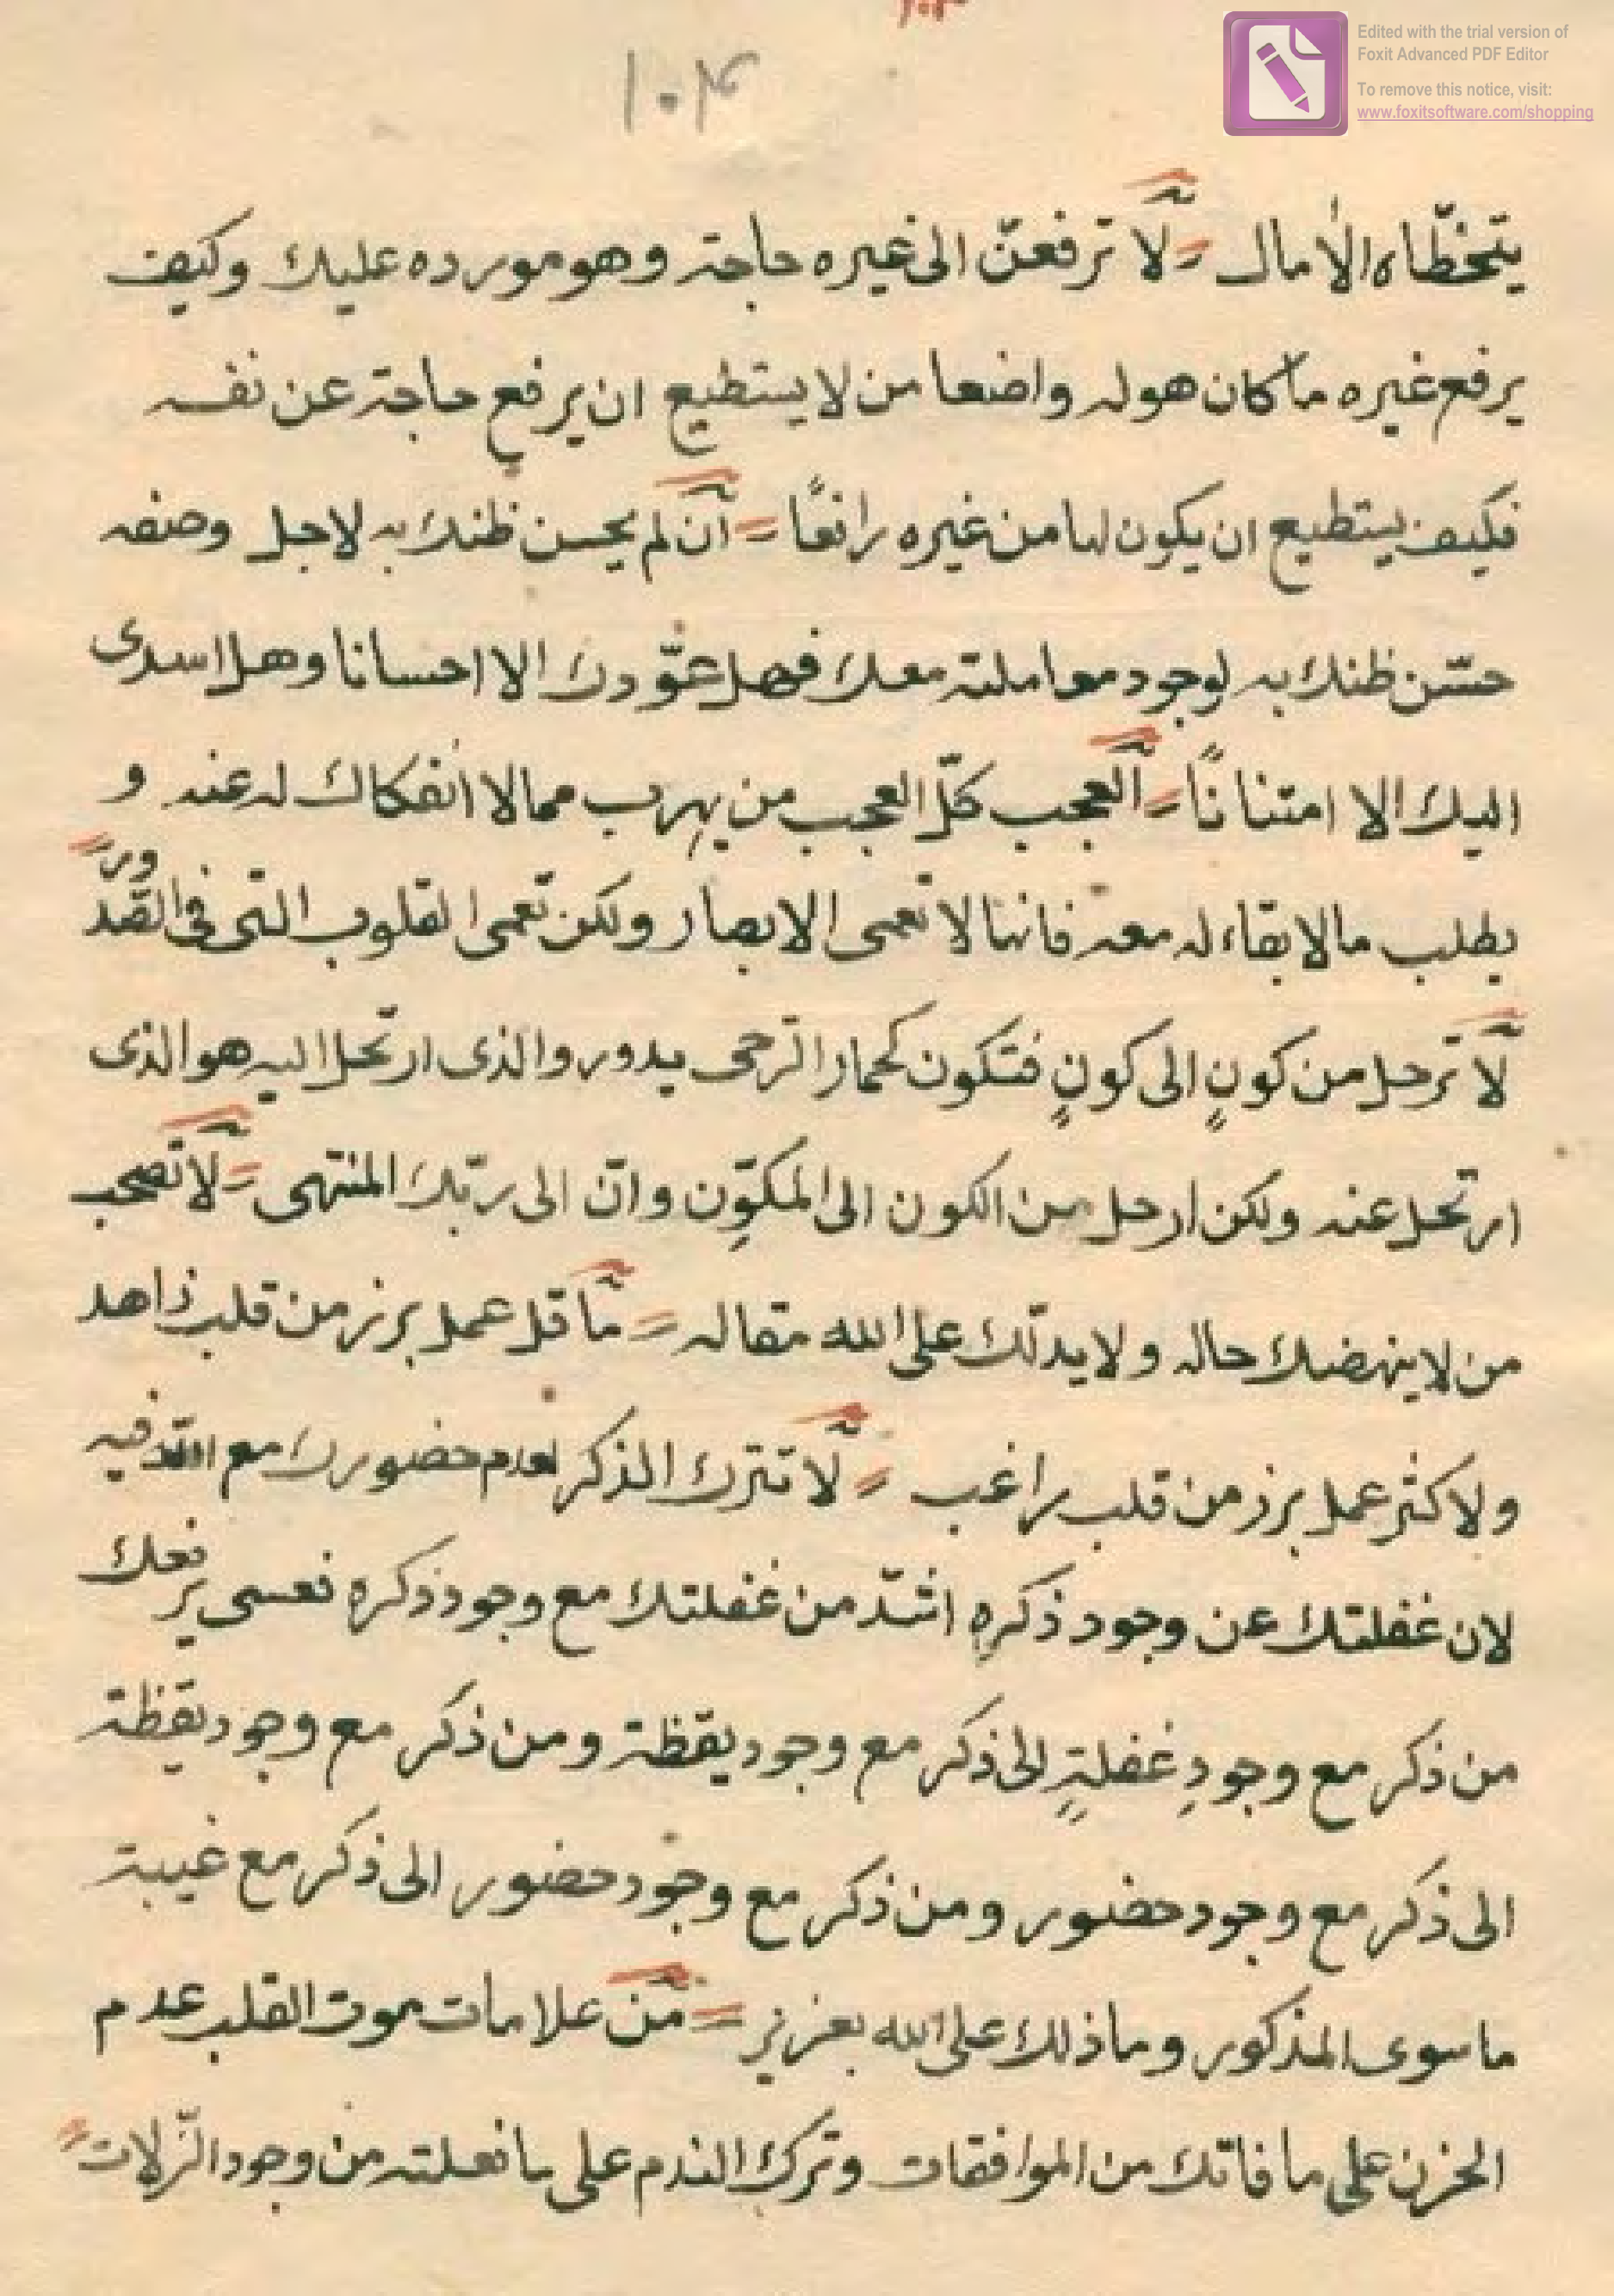 ١٠٤
Edited with the trial version of
Foxit Advanced PDF Editor
To remove this notice, visit:
www.foxitsoftware.com/shopping
يتخطّاه الأمال = لا ترفعنّ الى غيره حاجة وهو مورده عليك وكيف
يرفع غيره ما كان هو له واضعا من لا يستطيع ان يرفع حاجة عن نفسه
فكيف يستطيع ان يكون لها من غيره رافعًا = ان لم يحسن ظنك به لاجل وصفه
حسّن ظنك به لوجود معاملته معك فهل عوّدك الا احسانا وهل اسدى
اليك الا امتنانًا = العجب كلّ العجب من يهرب مما لا انفكاك له عنه و
يطلب ما لا بقاء له معه فانها لا تعمى الابصار ولكن تعمى القلوب التى فى الصّدور =
لا ترحل من كونٍ الى كونٍ فتكون كحمار الرّحى يدور والذى ارتحل اليه هو الذى
ارتحل عنه ولكن ارحل من الكون الى المكوِّن وانّ الى ربّك المنتهى = لا تصحب
من لا ينهضك حاله ولا يدلّك على الله مقاله = ما قل عمل برز من قلب زاهد
ولا كثر عمل برز من قلب راغب = لا تترك الذكر لعدم حضورك مع الله فيه
لان غفلتك عن وجود ذكرهِ اشدّ من غفلتك مع وجود ذكرهِ فعسى يرفعك
من ذكر مع وجودِ غفلةٍ الى ذكر مع وجود يقظة ومن ذكر مع وجود يقظة
الى ذكر مع وجود حضور ومن ذكر مع وجود حضور الى ذكر مع غيبة
ما سوى المذكور وما ذلك على الله بعزيز = من علامات موت القلب عدم
الحزن على ما فاتك من الموافقات وترك الندم على ما فعلته من وجود الزّلات =